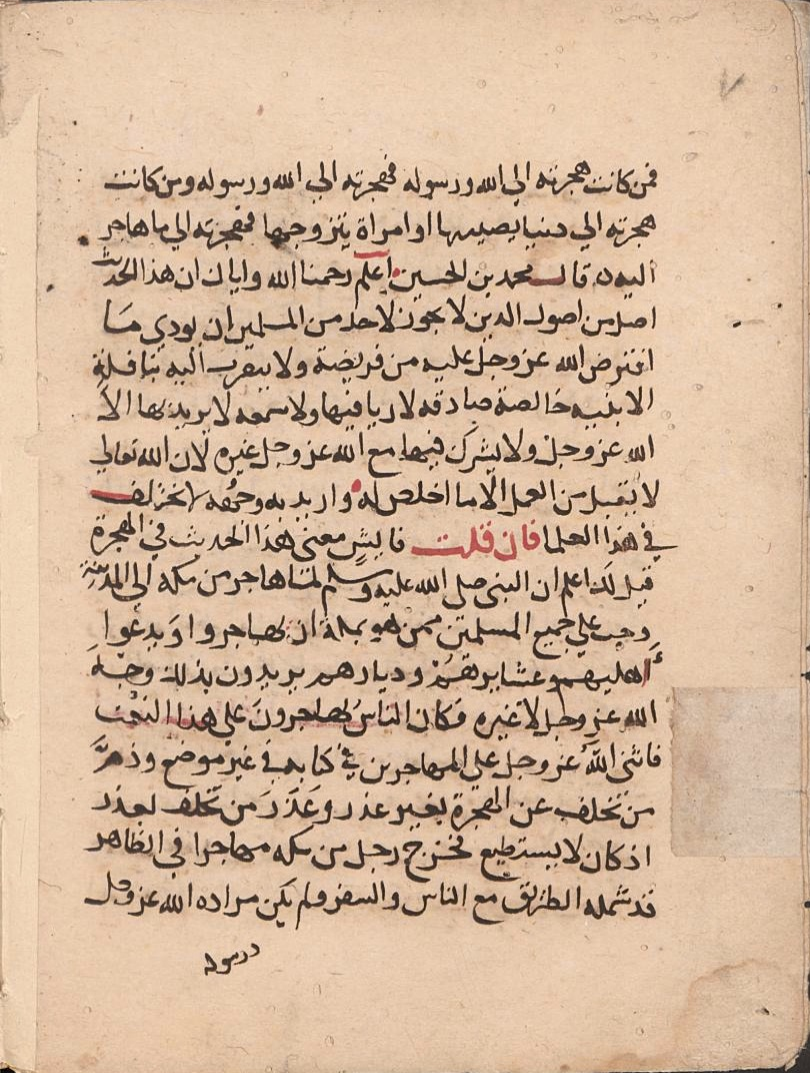 فمن كانت هجرته الي الله ورسوله فهجرته الي الله ورسوله ومن كانت
هجرته الي دنيا يصيبها او امراة يتزوجها فهجرته الي ما هاجر
اليه قال محمد بن الحسين اعلم رحمنا الله واياك ان هذا الحديث
اصل من اصول الدين لا يجوز لاحد من المسلمين ان يودي ما
افترض الله عز وجل عليه من فريضة ولا يتقرب اليه بنافلة
الا بنيه خالصة صادقه لا ريا فيها ولا سمعه لا يريد بها الا
الله عز وجل ولا يشرك فيها مع الله عز وجل غيره لان الله تعالي
لا يقبل من العمل الا ما اخلص له واريد به وجهه لا يختلف
في هذا العلما فان قلت فايش معنى هذا الحديث في الهجرة
قيل لك اعلم ان النبي صلى الله عليه وسلم لما هاجر من مكه الي المدينة
وجب علي جميع المسلمين ممن هو بمكة ان يهاجروا ويدعوا
اهليهم وعشايرهم وديارهم يريدون بذلك وجه
الله عز وجل لا غيره فكان الناس يهاجرون علي هذا النعت
فاثنى الله عز وجل علي المهاجرين في كتابه في غير موضع وذم
من تخلف عن الهجرة بغير عذر وعذر من تخلف بعذر
اذ كان لا يستطيع فخرج رجل من مكه مهاجرا في الظاهر
قد شمله الطريق مع الناس والسفر ولم يكن مراده الله عز وجل
ورسوله